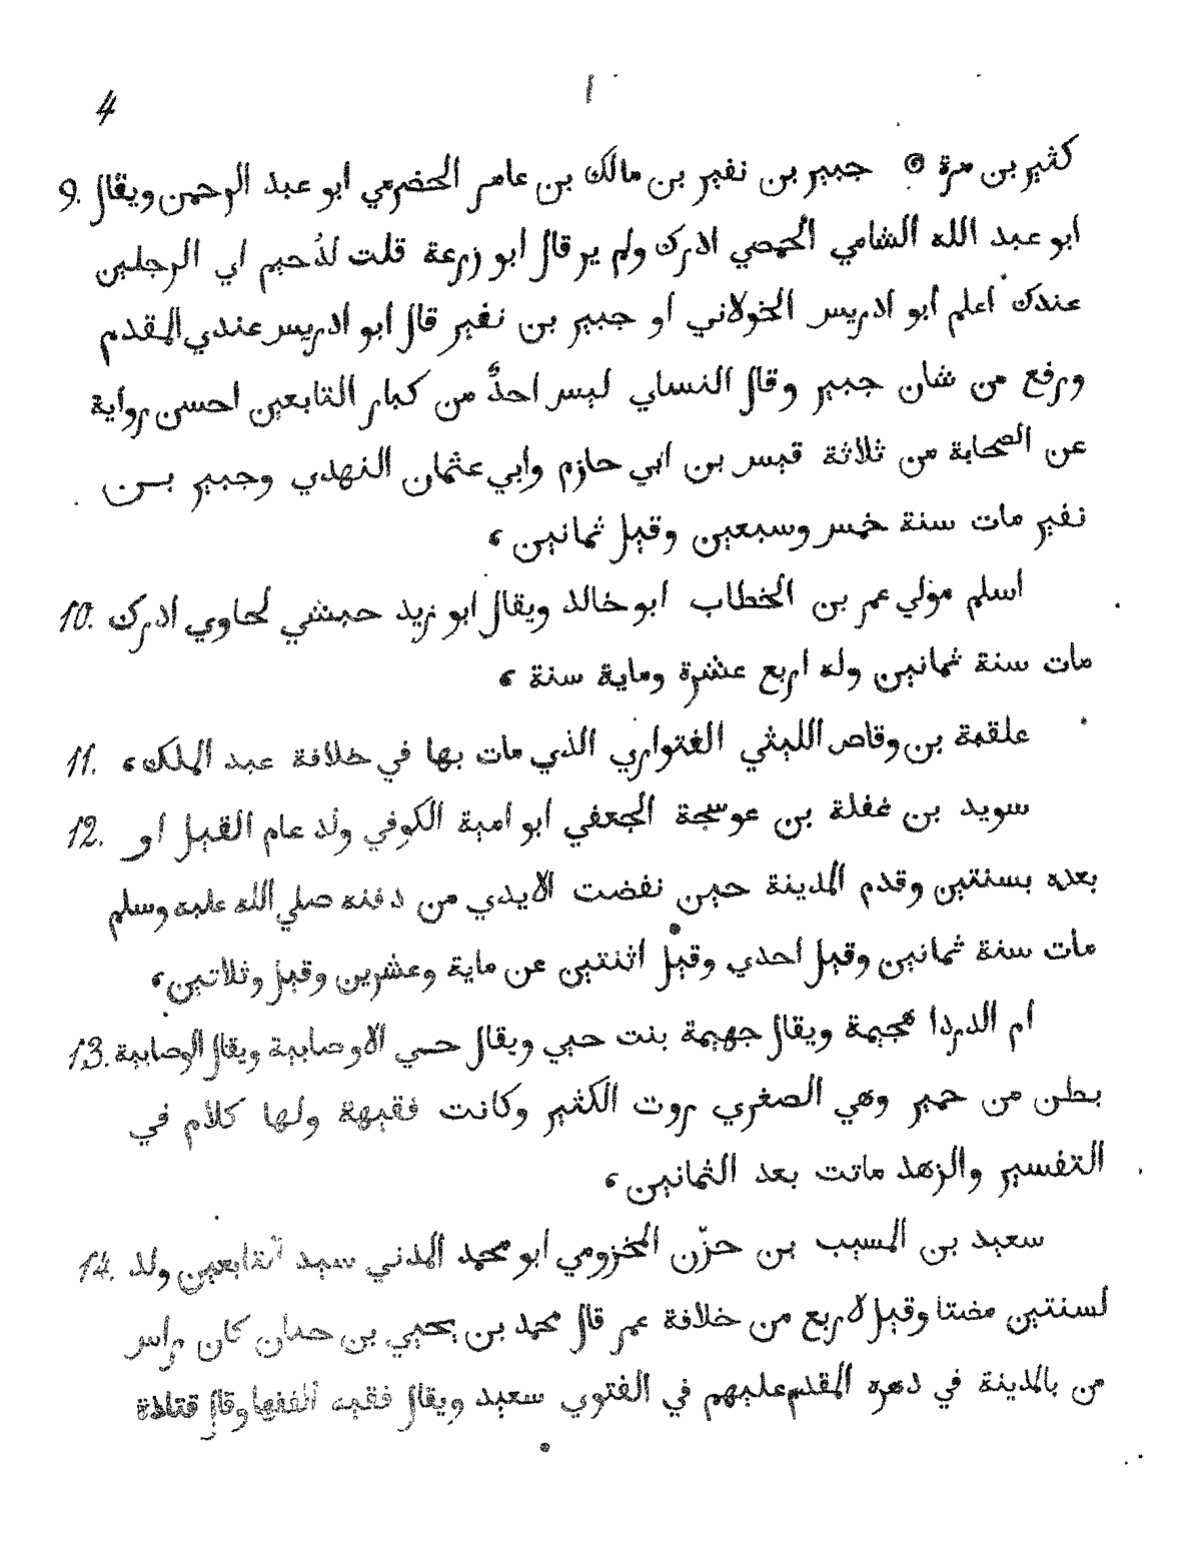 4
كثير بن مرة ۞ جبير بن نفير بن مالك بن عامر الحضرمي ابو عبد الرحمن ويقال 9.
ابو عبد الله الشامي الحمصي ادرك ولم ير قال ابو زرعة قلت لدُحيم اي الرجلين
عندك اعلم أبو ادريس الخولاني او جبير بن نفير قال ابو ادريس عندي المقدم
ورفع من شان جبير وقال النساي ليس احدٌ من كبار التابعين احسن رواية
عن الصحابة من ثلاثة قيس بن ابي حازم وابي عثمان النهدي وجبير بن
نفير مات سنة خمس وسبعين وقيل ثمانين ،
اسلم مولي عمر بن الخطاب ابو خالد ويقال ابو زيد حبشي لحاوي ادرك 10.
مات سنة ثمانين وله اربع عشرة وماية سنة ،
علقمة بن وقاص الليثي الفتواري الذي مات بها في خلافة عبد الملك ، 11.
سويد بن غفلة بن عوسجة الجعفي ابو امية الكوفي ولد عام القيل او 12.
بعده بسنتين وقدم المدينة حين نفضت الايدي من دفنه صلي الله عليه وسلم
مات سنة ثمانين وقيل احدي وقيل اثنتين عن ماية وعشرين وقيل وثلاتين ،
ام الدردا هجيمة ويقال جهيمة بنت حيي ويقال حسي الاوصابية ويقال الوصابية 13.
بطن من حمير وهي الصغري روت الكثير وكانت فقيهة ولها كلام في
التفسير والزهد ماتت بعد الثمانين ،
سعيد بن المسيب بن حزن المخزومي ابو محمد المدني سيد التابعين ولد 14.
لسنتين مضتا وقيل لاربع من خلافة عمر قال محمد بن يحيي بن حبان كان راس
من بالمدينة في دهره المقدم عليهم في الفتوي سعيد ويقال فقيه الفقها وقال قتادة